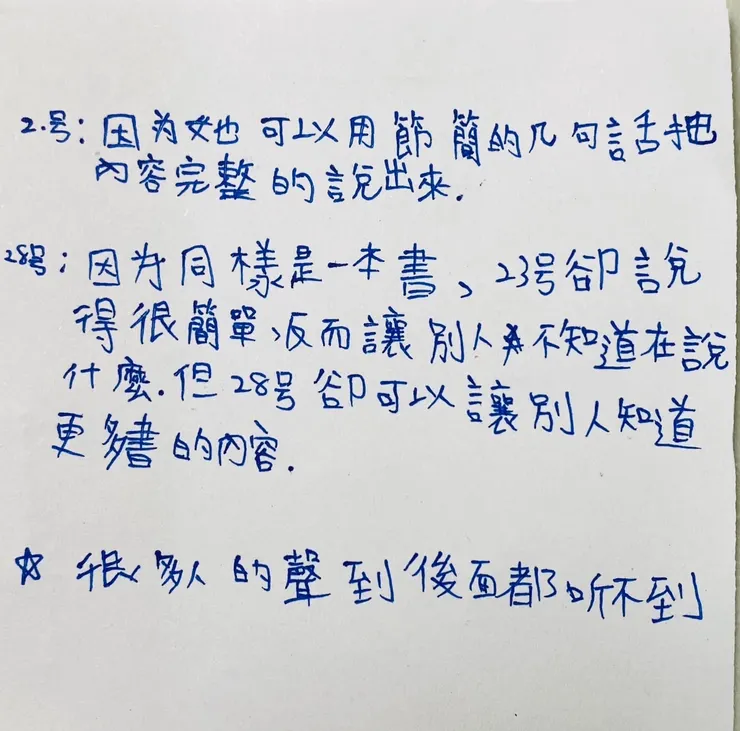 2.号:因为她可以用節簡的几句話把
內容完整的說出來.
28号:因为同樣是一本書、23号卻說
得很簡單,反而讓別人不知道在說
什麼.但28号卻可以讓別人知道
更多書的內容.
☆ 很多人的聲到後面都听不到